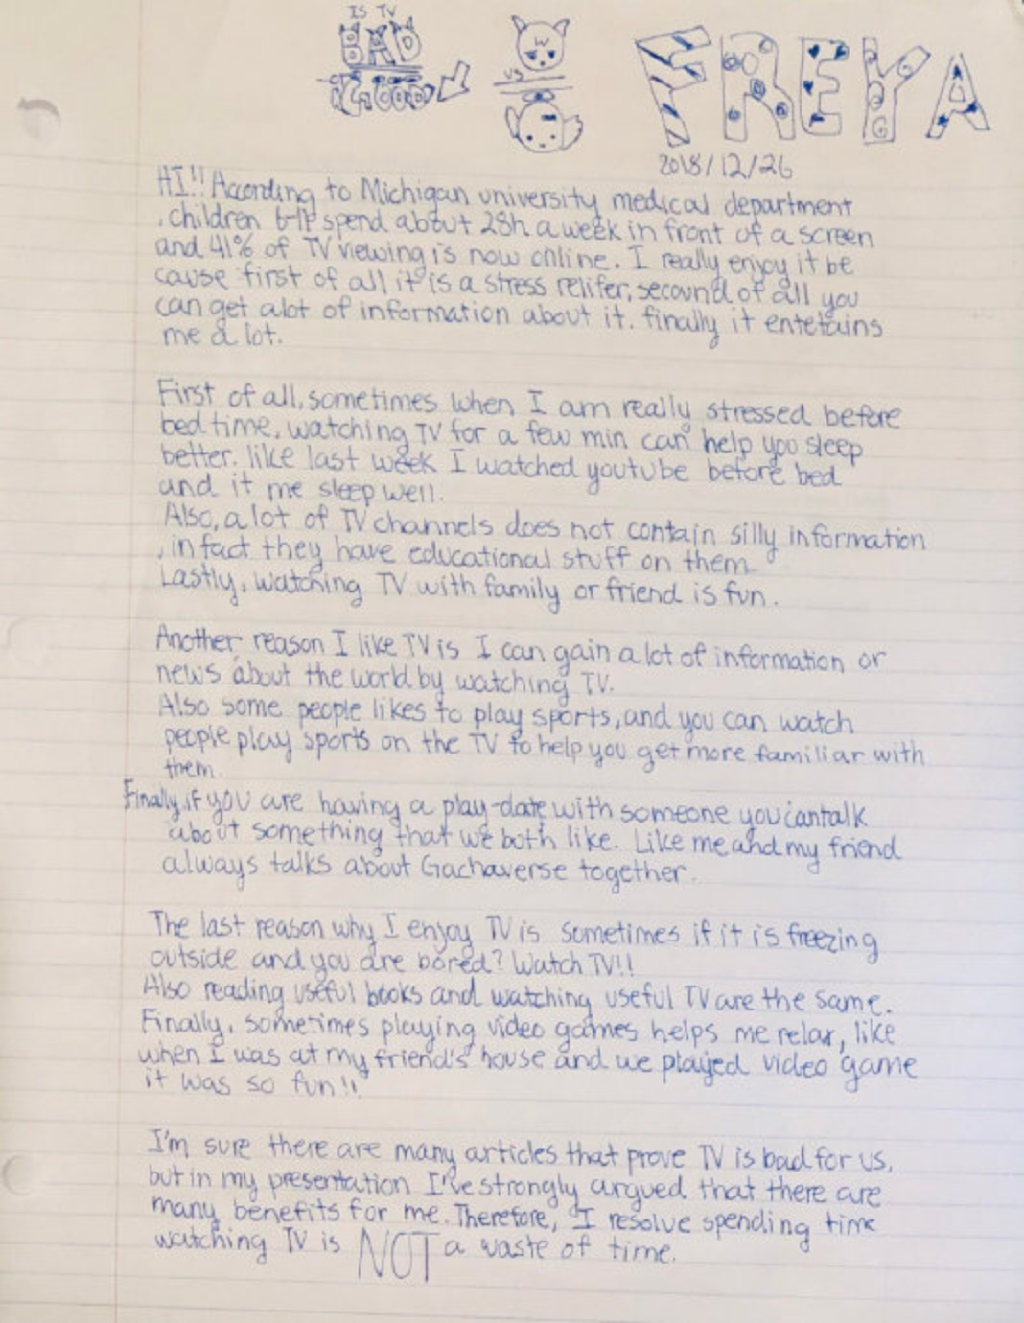 IS TV
BAD
GOOD
VS
FREYA
2018/12/26
HI!! Acording to Michigan university medical department
, children 6-11 spend about 28h a week in front of a screen
and 41% of TV viewing is now online. I really enjoy it be
cause first of all it is a stress relifer, secound of all you
can get alot of information about it. finally it entetains
me a lot.
First of all, sometimes when I am really stressed before
bed time, watching TV for a few min can help you sleep
better. like last week I watched youtube before bed
and it me sleep well.
Also, a lot of TV channels does not contain silly information
, in fact they have educational stuff on them.
Lastly, watching TV with family or friend is fun.
Another reason I like TV is I can gain a lot of information or
news about the world by watching TV.
Also some people likes to play sports, and you can watch
people play sports on the TV to help you get more familiar with
them.
Finally, if you are having a play-date with someone you can talk
about something that we both like. Like me and my friend
always talks about Gachaverse together.
The last reason why I enjoy TV is sometimes if it is freezing
outside and you are bored? Watch TV!!
Also reading useful books and watching useful TV are the same.
Finally, sometimes playing video games helps me relax, like
when I was at my friend's house and we played video game
it was so fun!!
I'm sure there are many articles that prove TV is bad for us,
but in my presentation I've strongly argued that there are
many benefits for me. Therefore, I resolve spending time
watching TV is NOT a waste of time.